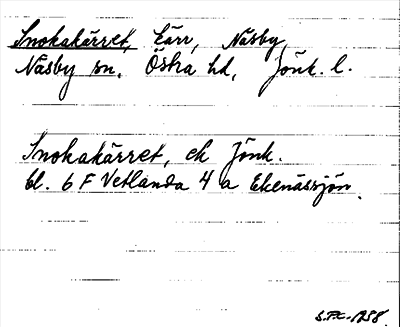 Snokakärret, kärr, Näsby,
Näsby sn. Östra hd, Jönk. l.
Snokakärret, ek Jönk.
bl. 6 F Vetlanda 4 a Ekenässjön.
1958.